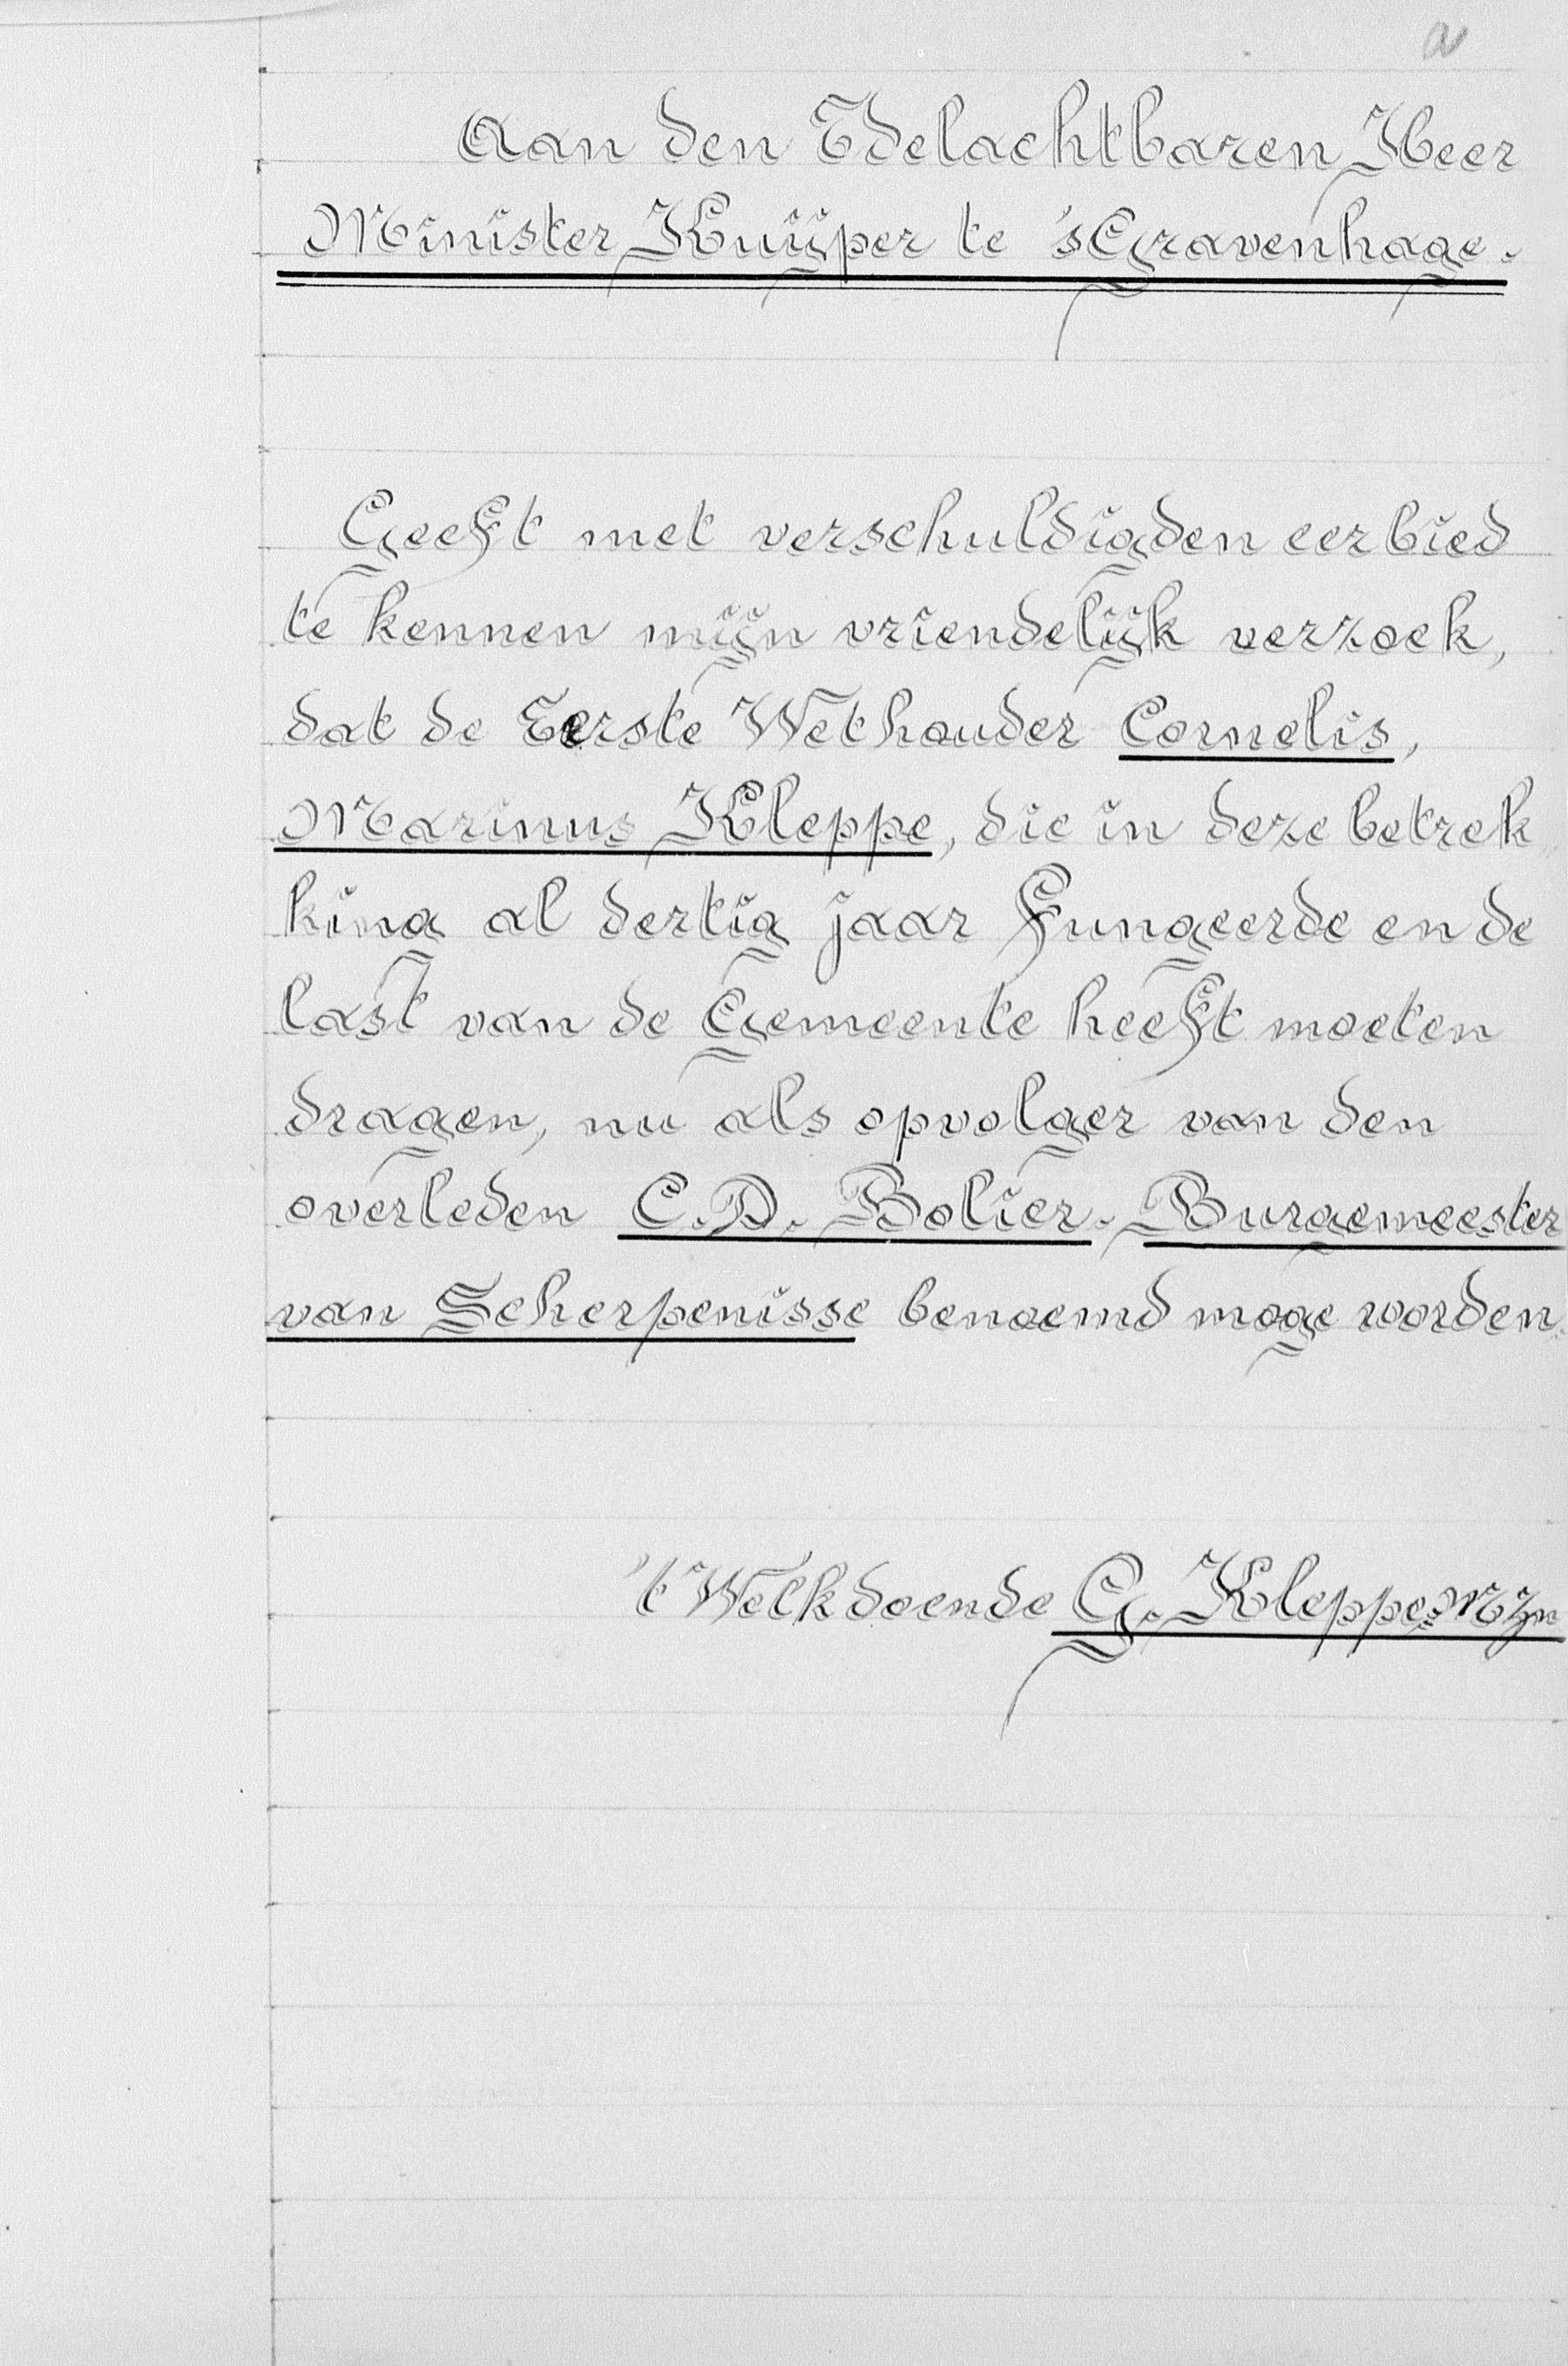 a
Aan den Edelachtbaren Heer
Minister Kuijper te 's Gravenhage.
Geeft met verschuldigden eerbied
te kennen mijn vriendelijk verzoek,
dat de Eerste Wethouder Cornelis,
Marinus Kleppe, die in deze betrek
king al dertig jaar Fungeerde en de
last van de Gemeente heeft moeten
dragen, nu als opvolger van den
overleden C. D. Bolier. Burgemeester
van Scherpenisse benoemd moge worden.
't Welk doende G. Kleppe Mzn